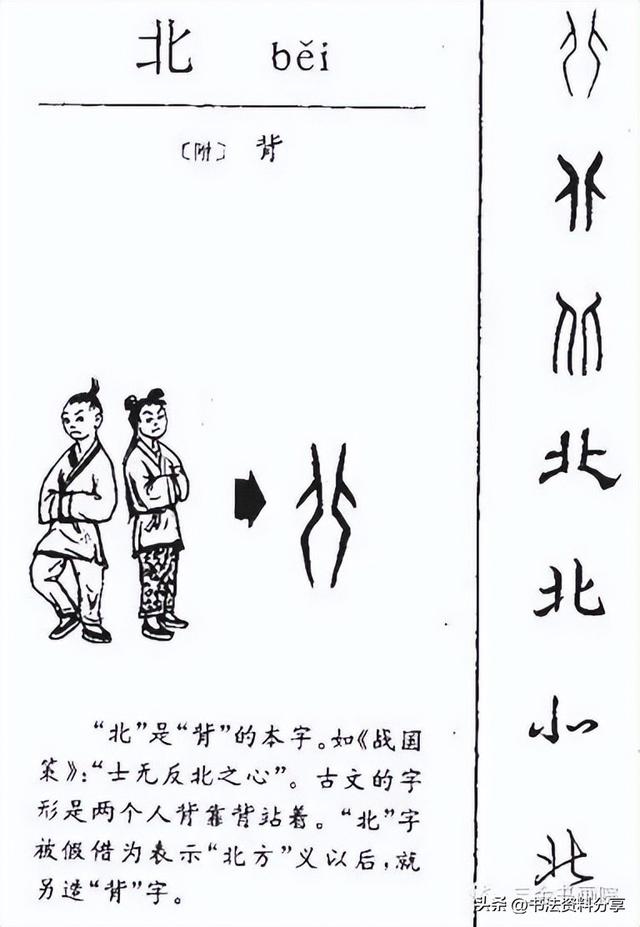 北 běi
〔附〕 背
“北”是“背”的本字。如《战国
策》:“士无反北之心”。古文的字
形是两个人背靠背站着。“北”字
被假借为表示“北方”义以后,就
另造“背”字。
北
北
北
北
北
北
北
头条 @书法资料分享